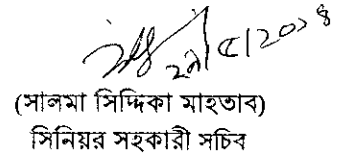 ২৯/৫/২০১৪
(সালমা সিদ্দিকা মাহতাব)
সিনিয়র সহকারী সচিব